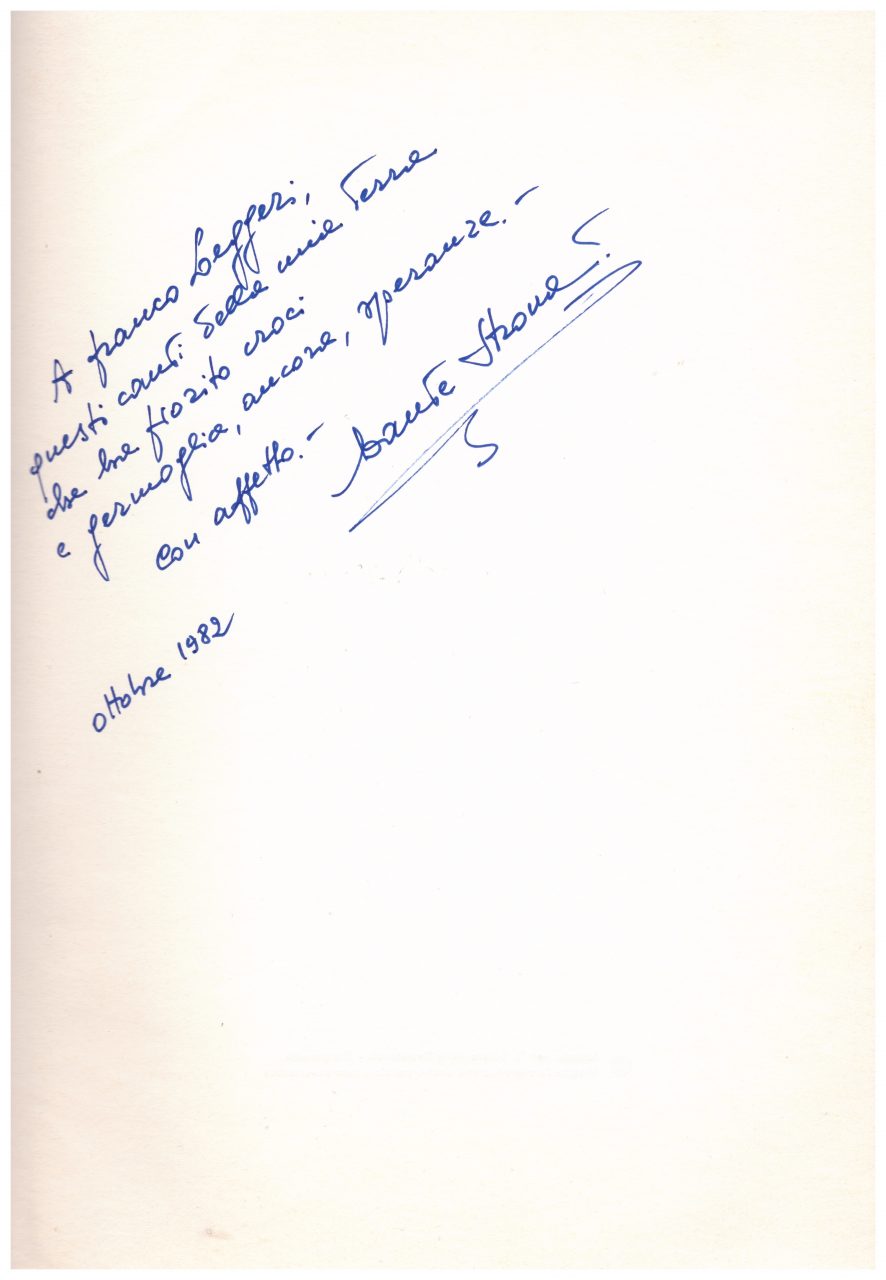 A Franco Leggeri,
questi canti della mia Terra
che ha fiorito croci
e germoglia, ancora, speranza.-
con affetto.-
Dante Strona
ottobre 1982